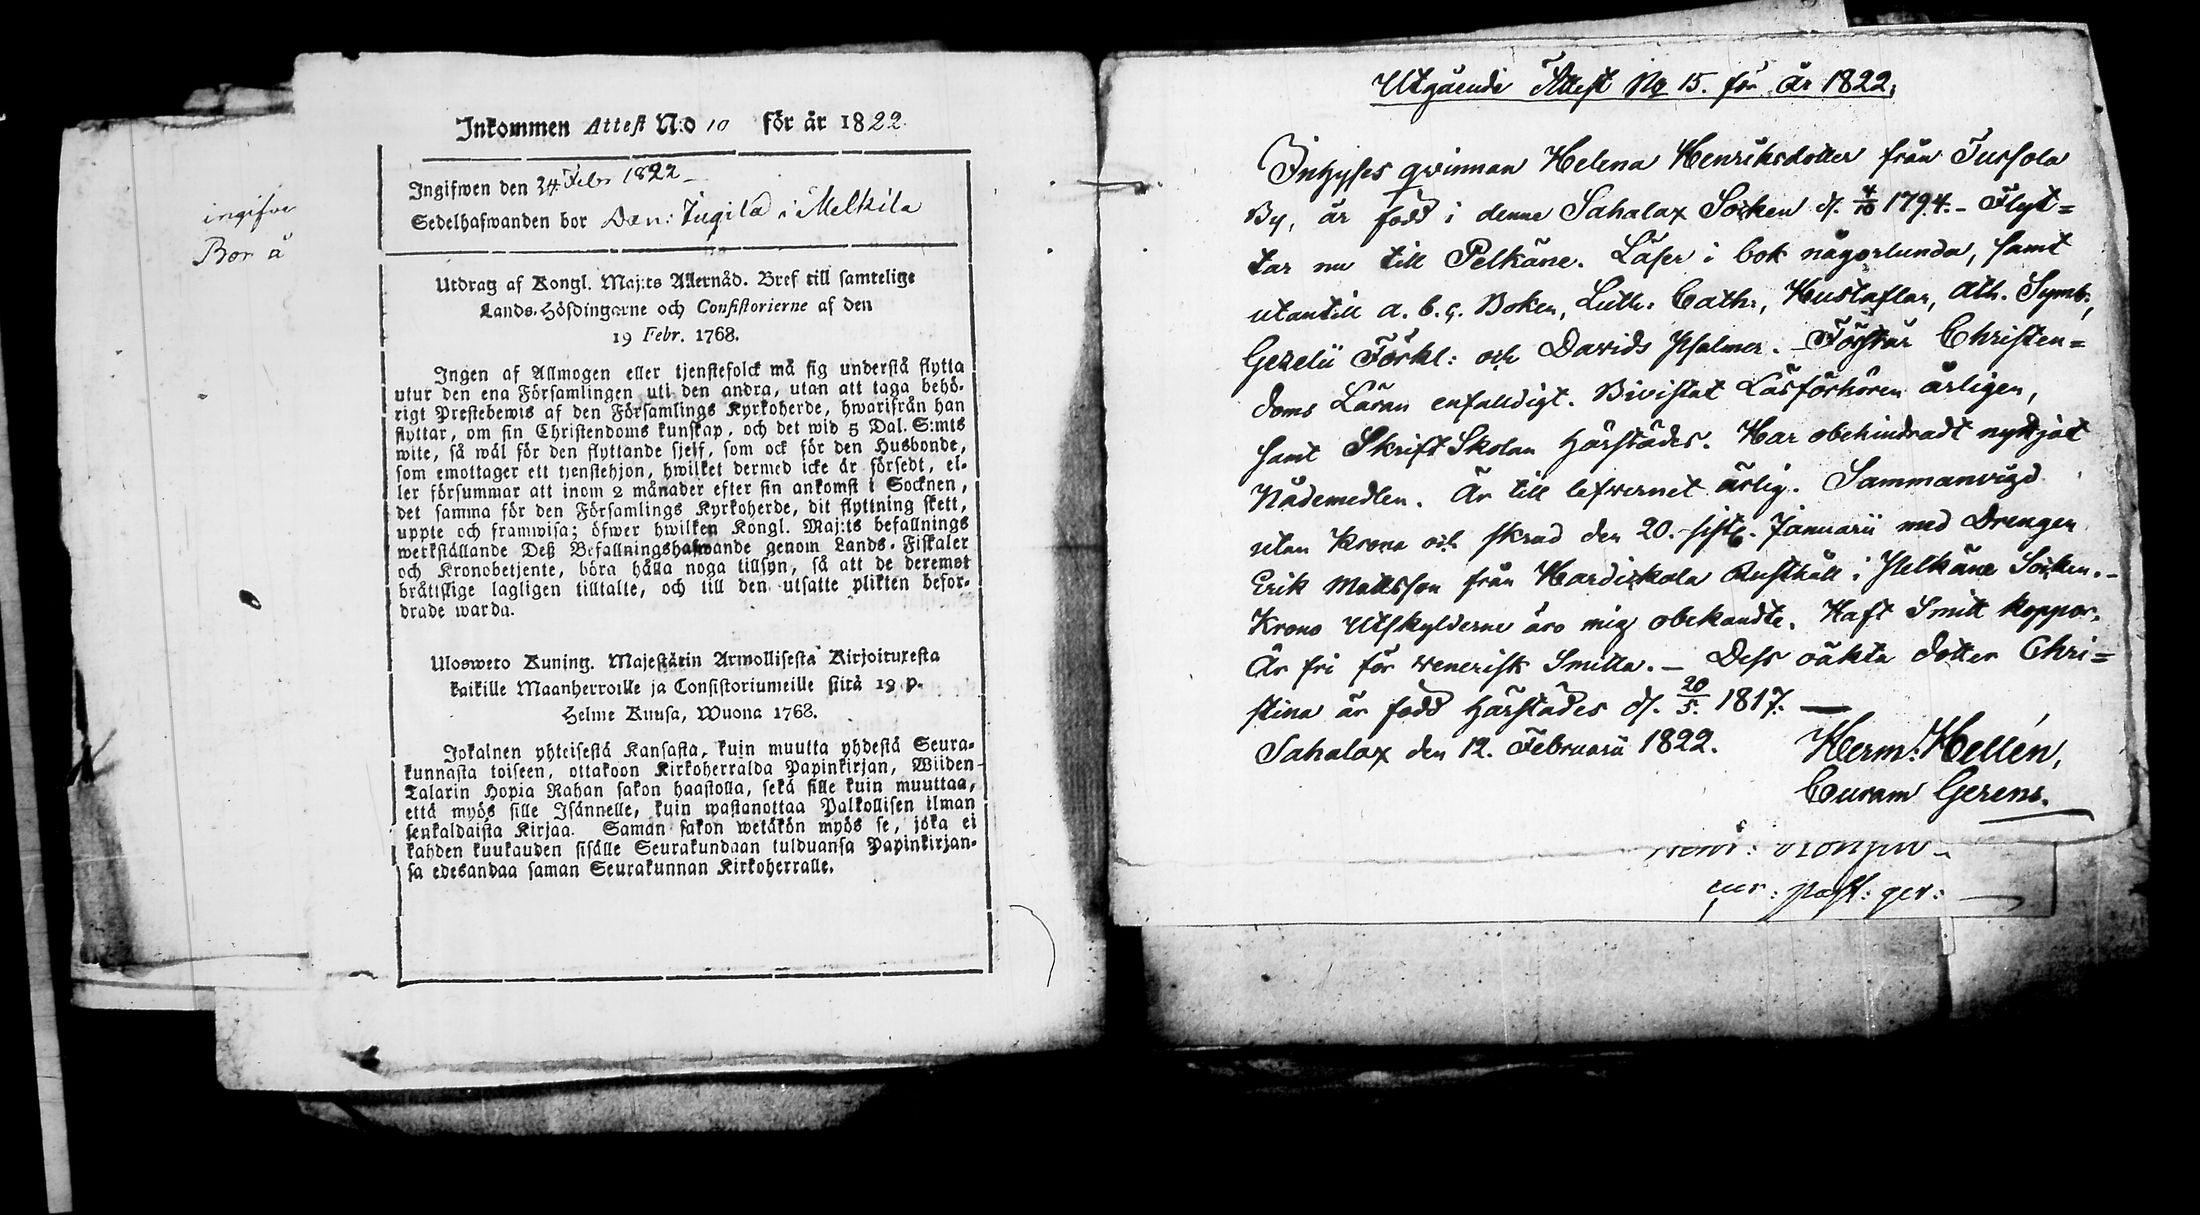 ingifwe
Bor å
Inkommen Attest N:o 10 för år 1822
Ingifwen den 24 Febr 1822
Sedelhafwanden bor Dan: Jugila i Melkila
Utdrag af Kongl. Maj:ts Allernåd. Bref till samtelige
Lands-Höfdingarne och Consistorierne af den
19 Febr. 1768.
Ingen af Allmogen eller tjenstefolck må sig understå flytta
utur den ena Församlingen uti den andra, utan att taga behö-
rigt Prestebewis af den Församlings Kyrkoherde, hwarifrån han
flyttar, om sin Christendoms kunskap, och det wid 5 Dal. S:mts
wite, så wäl för den flyttande sjelf, som ock för den Husbonde,
som emottager ett tjenstehjon, hwilket dermed icke är försedt, el-
ler försummar att inom 2 månader efter sin ankomst i Socknen,
det samma för den Församlings Kyrkoherde, dit flyttning skett,
uppte och framwisa; öfwer hwilken Kongl. Maj:ts befallnings
werkställande Deß Befallningshafwande genom Lands-Fiskaler
och Kronobetjente, böra hålla noga tillsyn, så att de deremot
bråttslige lagligen tilltalte, och till den utsatte plikten befor-
drade warda.
Ulosweto Kuning. Majestätin Armollisesta Kirjoituxesta
kaikille Maanherroille ja Consistoriumeille siitä 19 p.
Helme Kuusa, Wuona 1768.
Jokainen yhteisestä Kansasta, kuin muutta yhdestä Seura-
kunnasta toiseen, ottakoon Kirkoherralda Papinkirjan, Wiiden-
Talarin Hopia Rahan sakon haastolla, sekä sille kuin muuttaa,
että myös sille Isännelle, kuin wastanottaa Palkollisen ilman
senkaldaista Kirjaa. Saman sakon wetäkön myös se, joka ei
kahden kuukauden sisälle Seurakundaan tulduansa Papinkirjan-
sa edesandaa saman Seurakunnan Kirkoherralle.
Utgående Attest No 15. för år 1822.
Inhyses qvinnan Helena Henriksdotter från Tursola
By, är född i denne Sahalax Socken d. 4/10 1794. - Flyt=
tar nu till Pelkäne. Läser i bok någorlunda, samt
utantill a. b. c. Boken, Luth: Cath:, Hustaflar, Ath. Symb:,
Gezelii Förkl: och Davids Psalmer. Förstår Christen=
doms Läran enfalldigt. Bivistat Läsförhören årligen,
samt Skrift Skolan härstädes. Har obehindradt nyttjat
Nådemedlen. Är till lefvernet ärlig. Sammanvigd
utan Krona och skrud den 20. sistl. Januarii med Drengen
Erik Mattsson från Hardikkala Rusthåll i Pelkäne Socken. -
Krono Utskylderne äro mig obekandte. Haft Smitt koppor.
Är fri för venerisk Smitta. - Dess oäkta dotter Chri=
stina är född härstädes d. 20/5. 1817. -
Sahalax den 12. Februarii 1822.
Herm: Hellén,
Curam Gerens.
cur: past: ger: